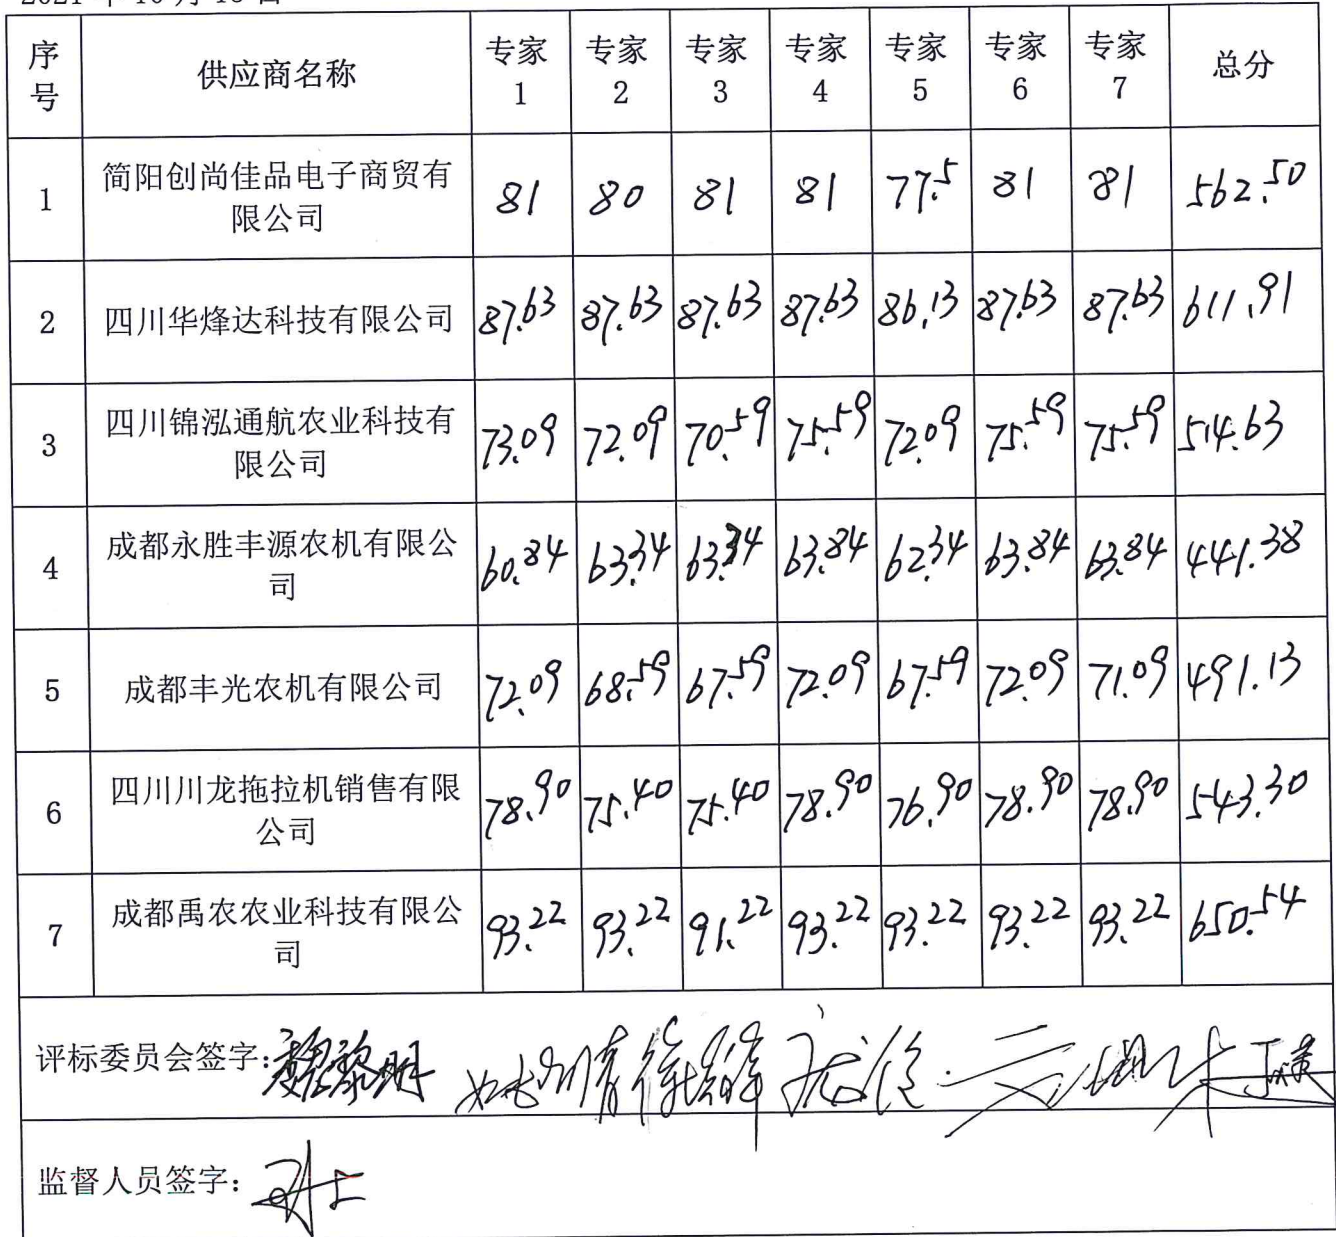 序号 供应商名称 专家1 专家2 专家3 专家4 专家5 专家6 专家7 总分
1 简阳创尚佳品电子商贸有限公司 81 80 81 81 77.5 81 81 562.50
2 四川华烽达科技有限公司 87.63 87.63 87.63 87.63 86.13 87.63 87.63 611.91
3 四川锦泓通航农业科技有限公司 73.09 72.09 70.59 75.59 72.09 75.59 75.59 514.63
4 成都永胜丰源农机有限公司 60.84 63.34 63.34 63.84 62.34 63.84 63.84 441.38
5 成都丰光农机有限公司 72.09 68.59 67.59 72.09 67.59 72.09 71.09 491.13
6 四川川龙拖拉机销售有限公司 78.90 75.40 75.40 78.90 76.90 78.90 78.90 543.30
7 成都禹农农业科技有限公司 93.22 93.22 91.22 93.22 93.22 93.22 93.22 650.54
评标委员会签字:
监督人员签字: